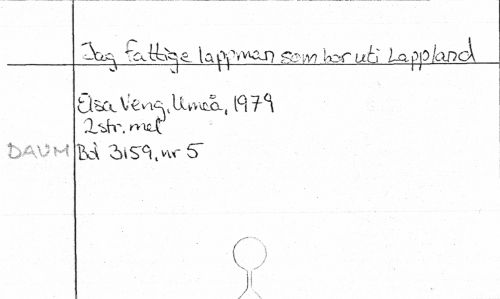 Jag fattige lappman som bor uti Lappland
Elsa Veng, Umeå, 1979
2str. mel
DAUM Bd 3159, nr 5